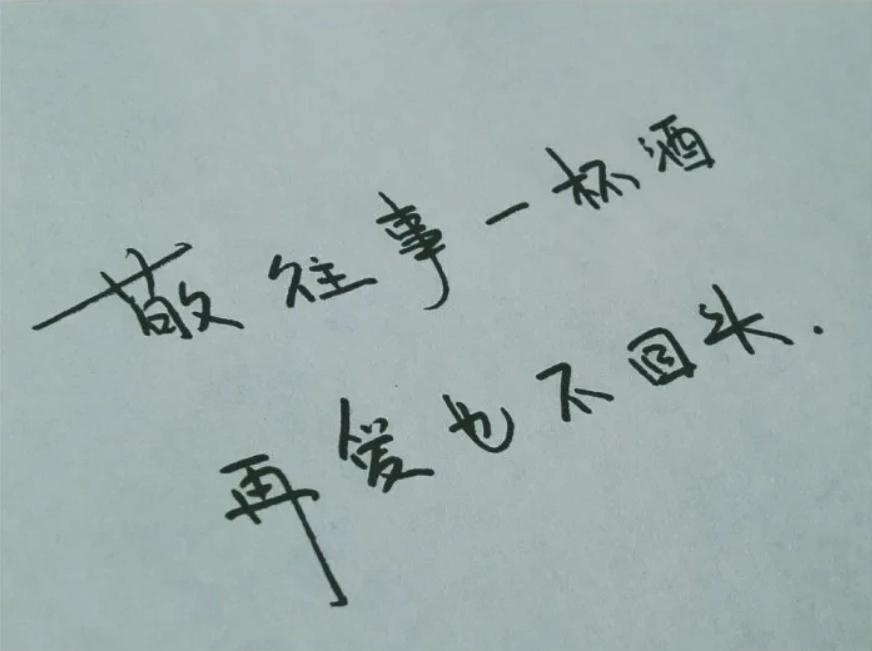 敬往事一杯酒
再爱也不回头.